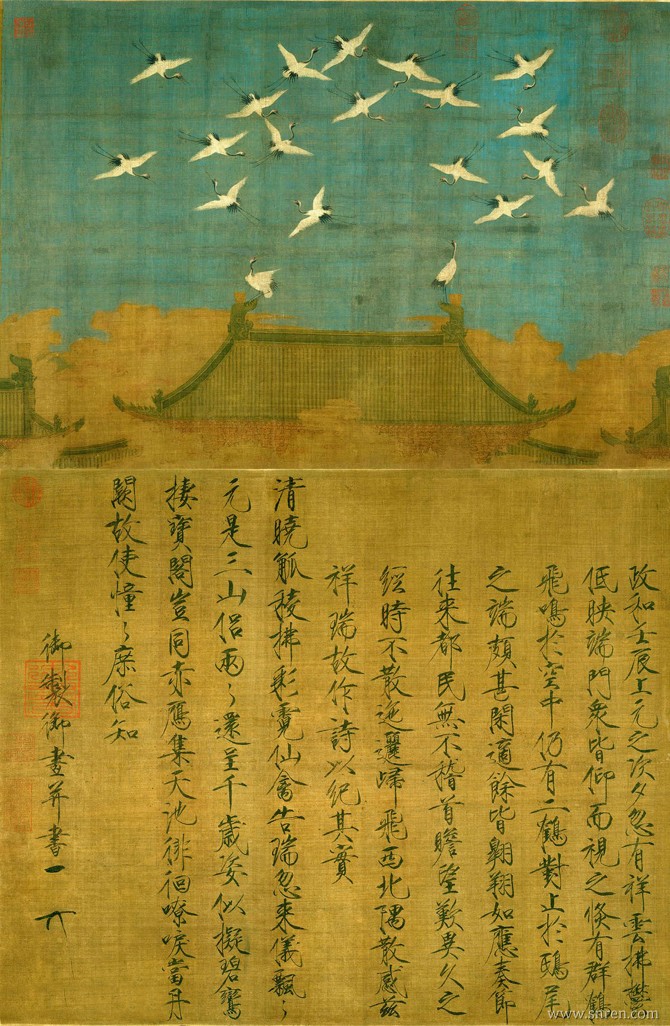 政和壬辰上元之次夕忽有祥雲拂鬱
低映端門衆皆仰而視之倏有群鶴
飛鳴於空中仍有二鶴對止於鴟尾
之端頗甚閑適餘皆翱翔如應奏節
往來都民無不稽首瞻望歎異久之
經時不散迤邐歸飛西北隅散感茲
祥瑞故作詩以紀其實
清曉觚稜拂彩霓仙禽告瑞忽來儀飄〻
元是三山侶兩〻還呈千歲姿似擬碧鸞
棲寶閣豈同赤鴈集天池徘徊嘹唳當丹
闕故使憧〻庶俗知
御製御畫并書
www.snren.com